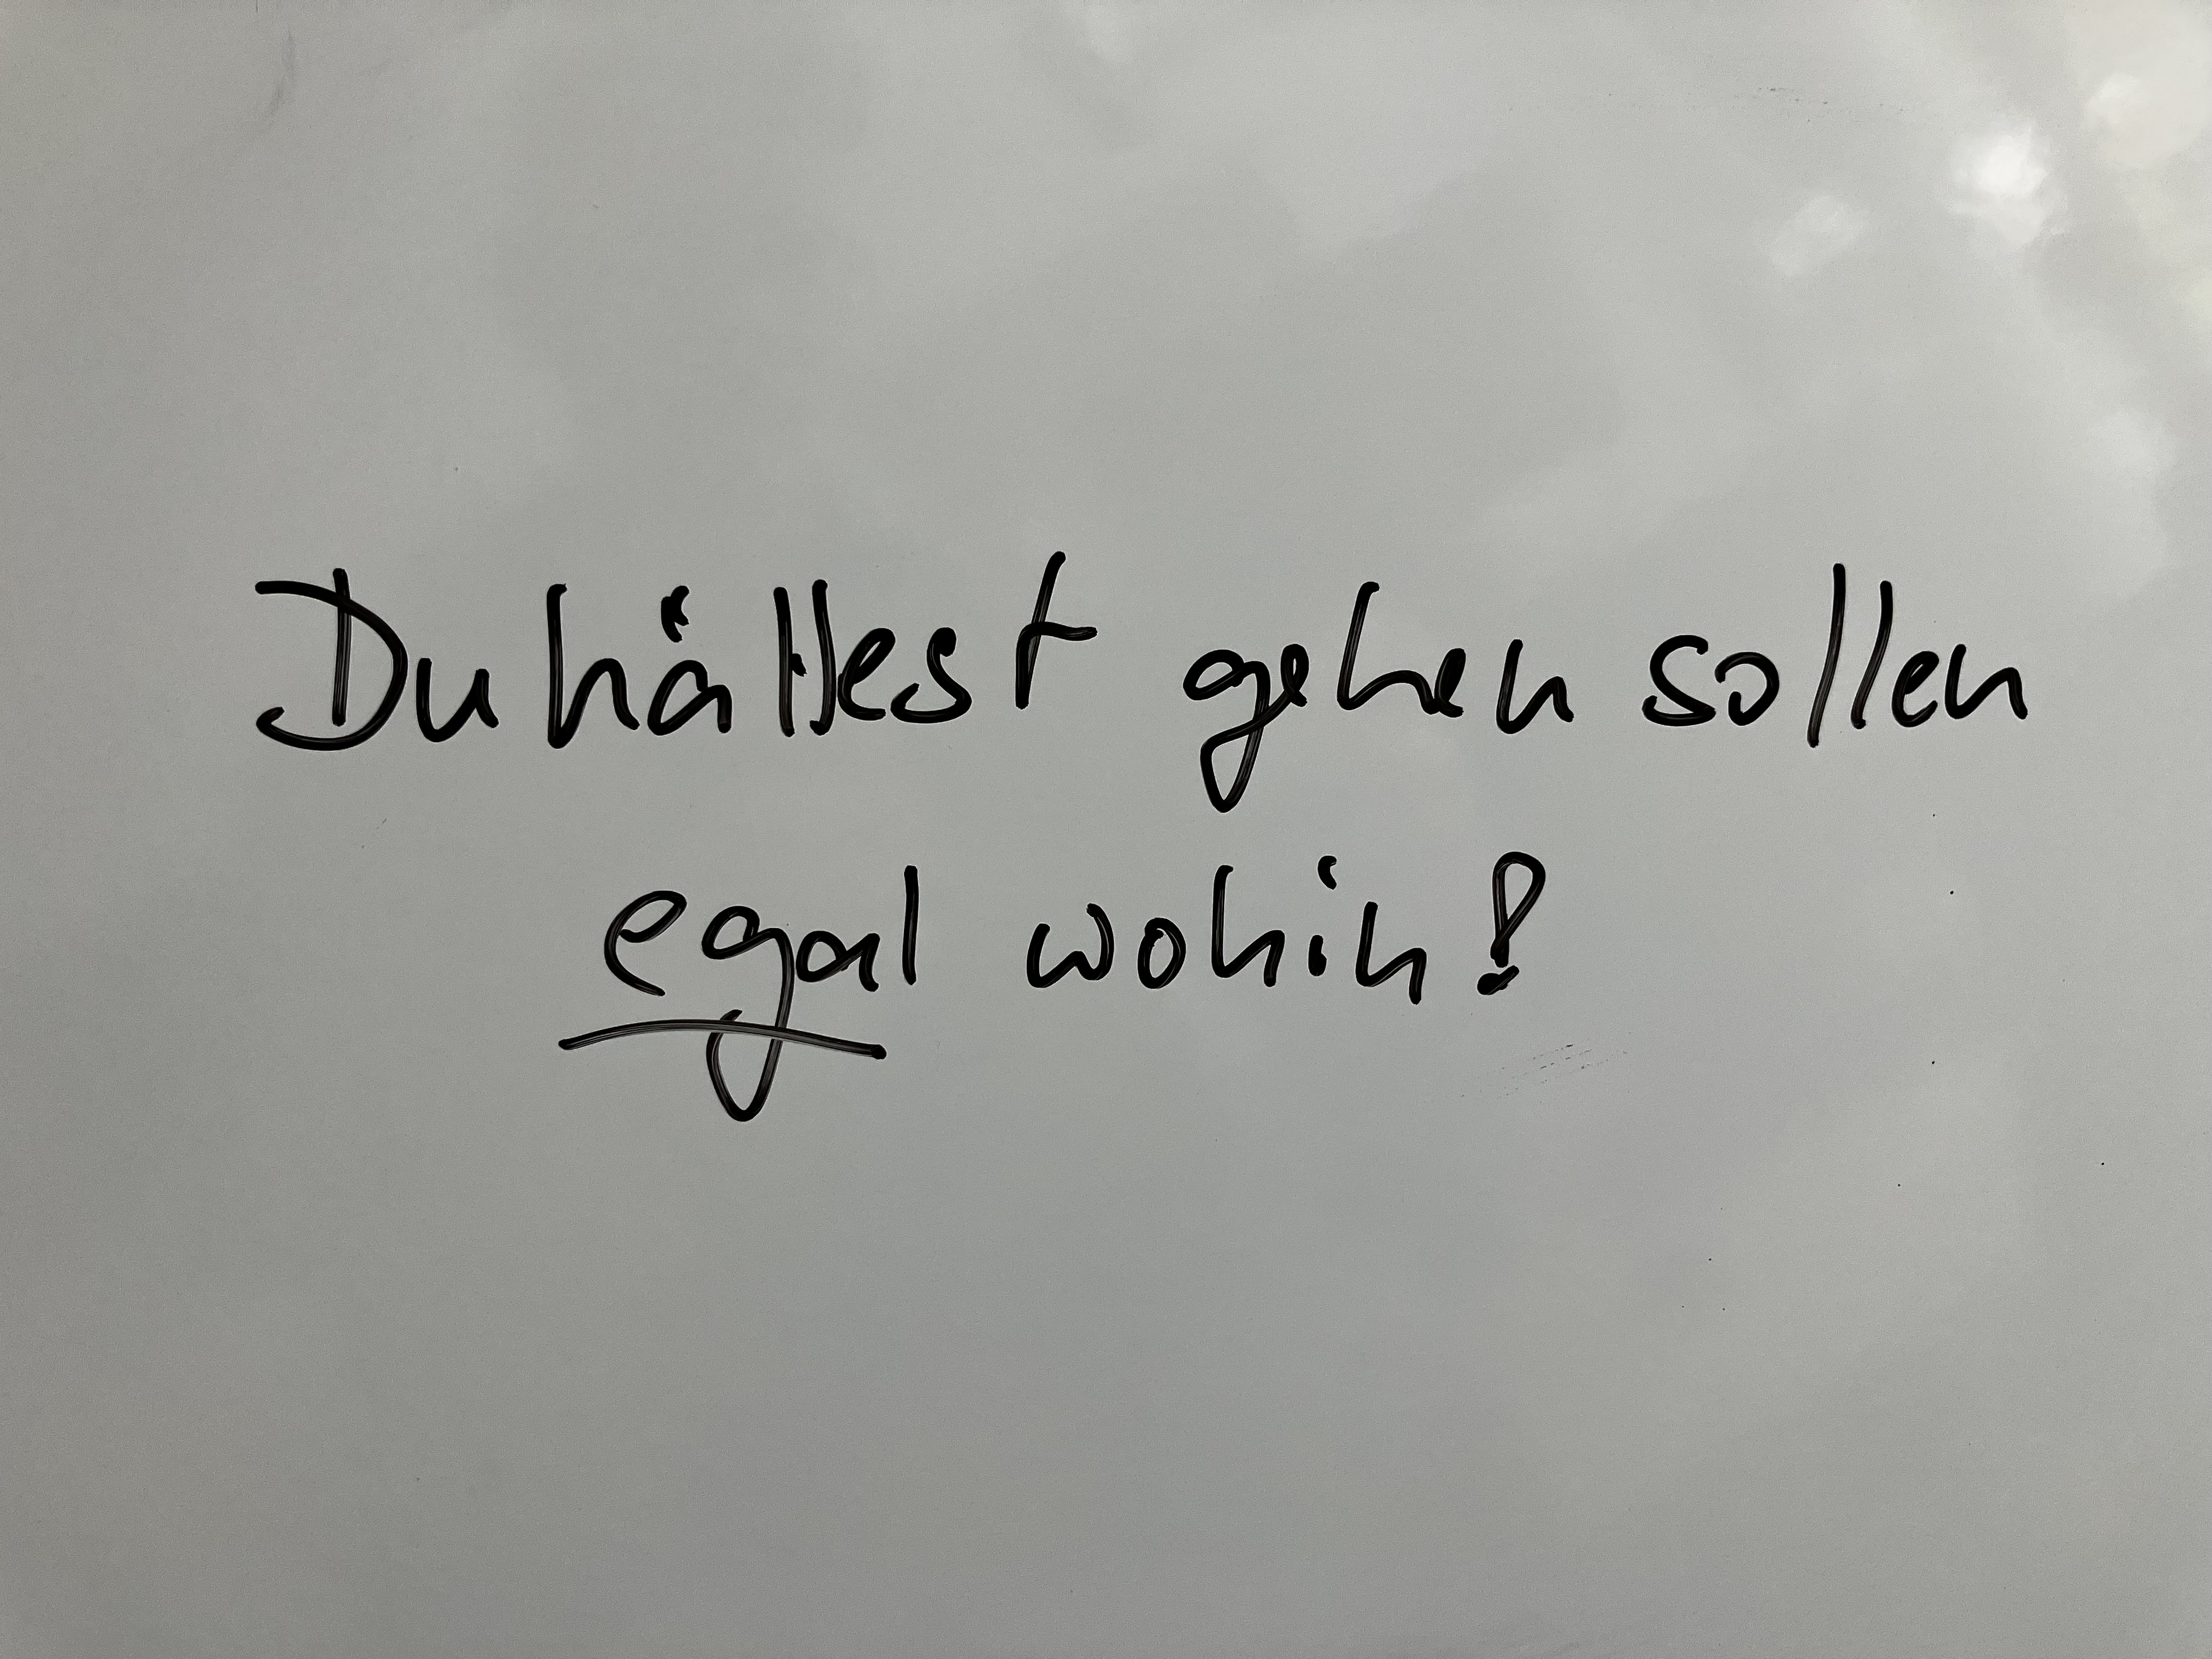 Du hättest gehen sollen
egal wohin!